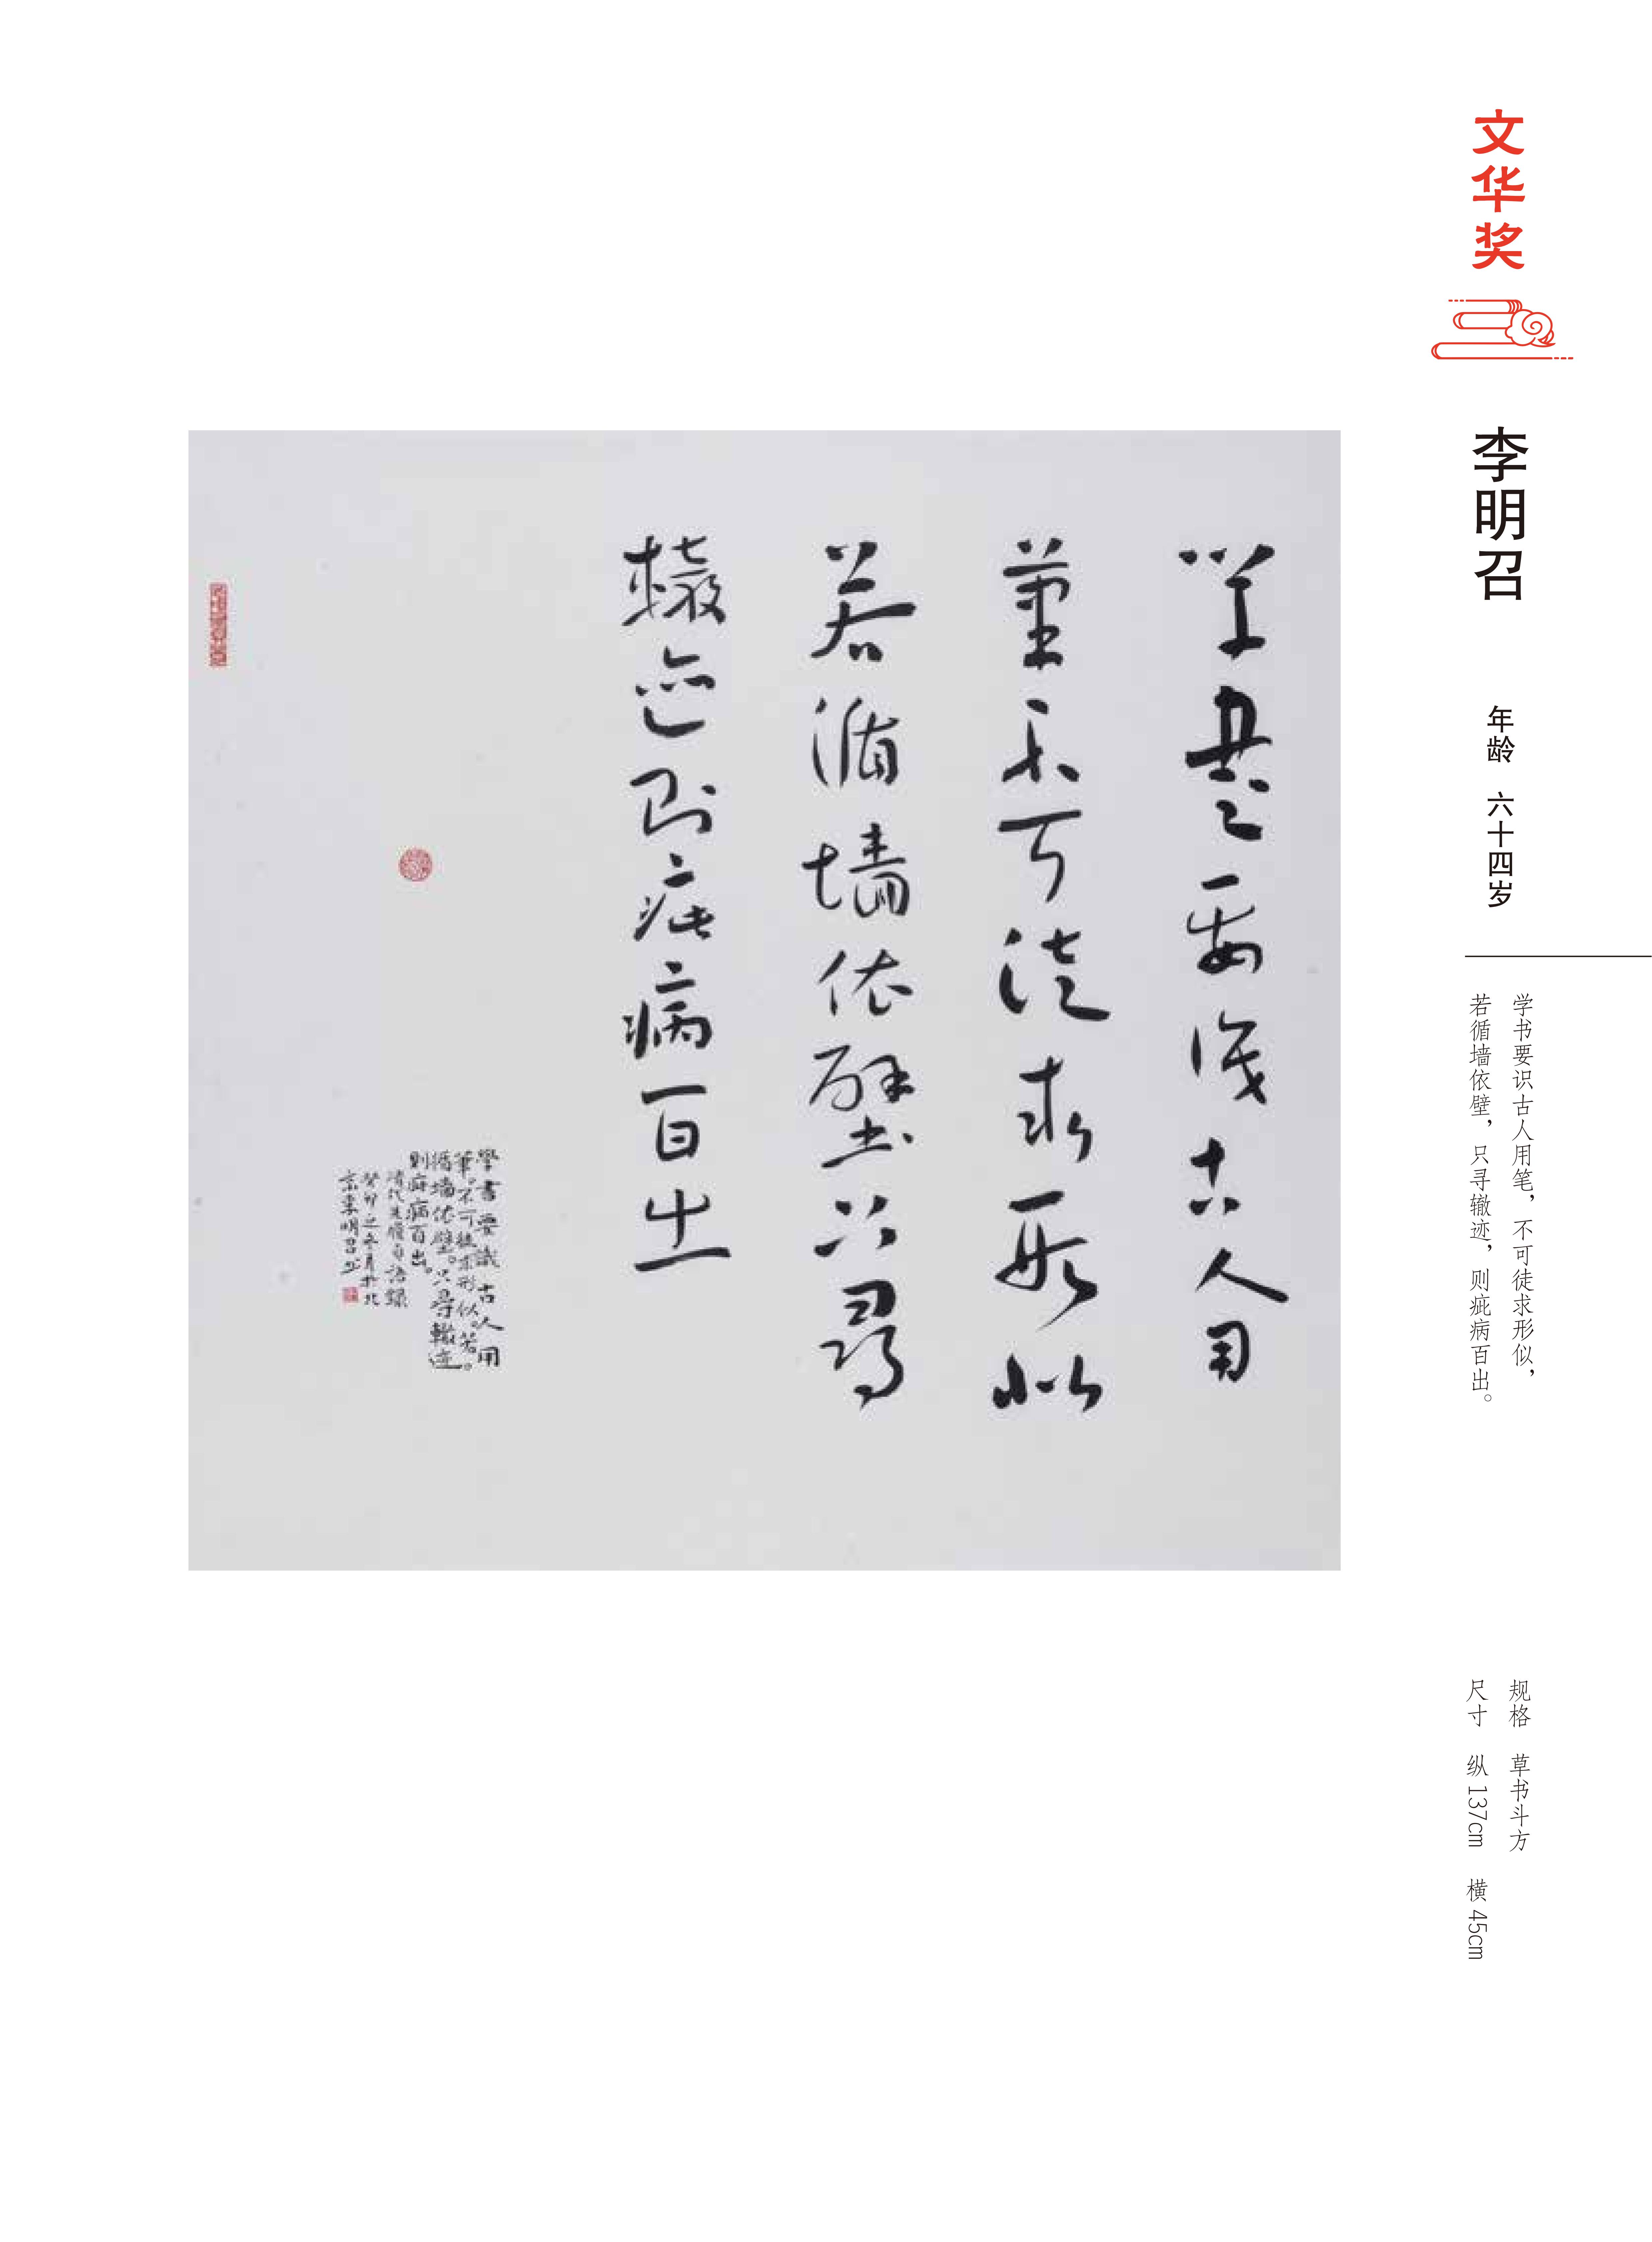 文华奖
李明召
年龄 六十四岁
学书要识古人用笔，不可徒求形似，
若循墙依壁，只寻辙迹，则疵病百出。
规格 草书斗方
尺寸 纵 137cm 横 45cm
学书要识古人用
筆不可徒求形似
若循墙依壁只尋
轍迹则疵病百出
學書要識古人用
筆。不可徒求形似。若。
循墙依壁。只尋轍迹
则疵病百出。
清代朱履貞語録
癸卯之冬月於北
京李明召书